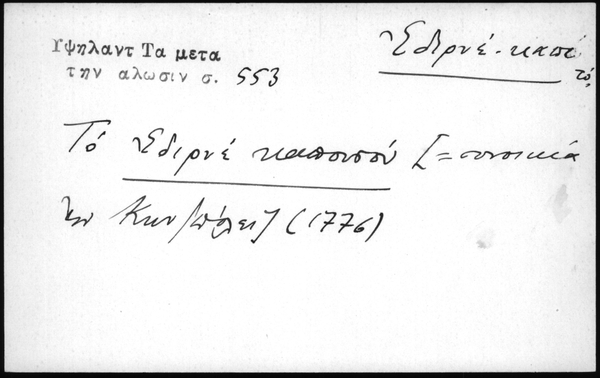 Υψηλαντ Τα μετα
την αλωσιν σ. 553
Ἐδιρνέ-καπέ
τό,
Τό Ἐδιρνέ καπουσού [= συνοικία
ἐν Κων/πόλει] (1776)